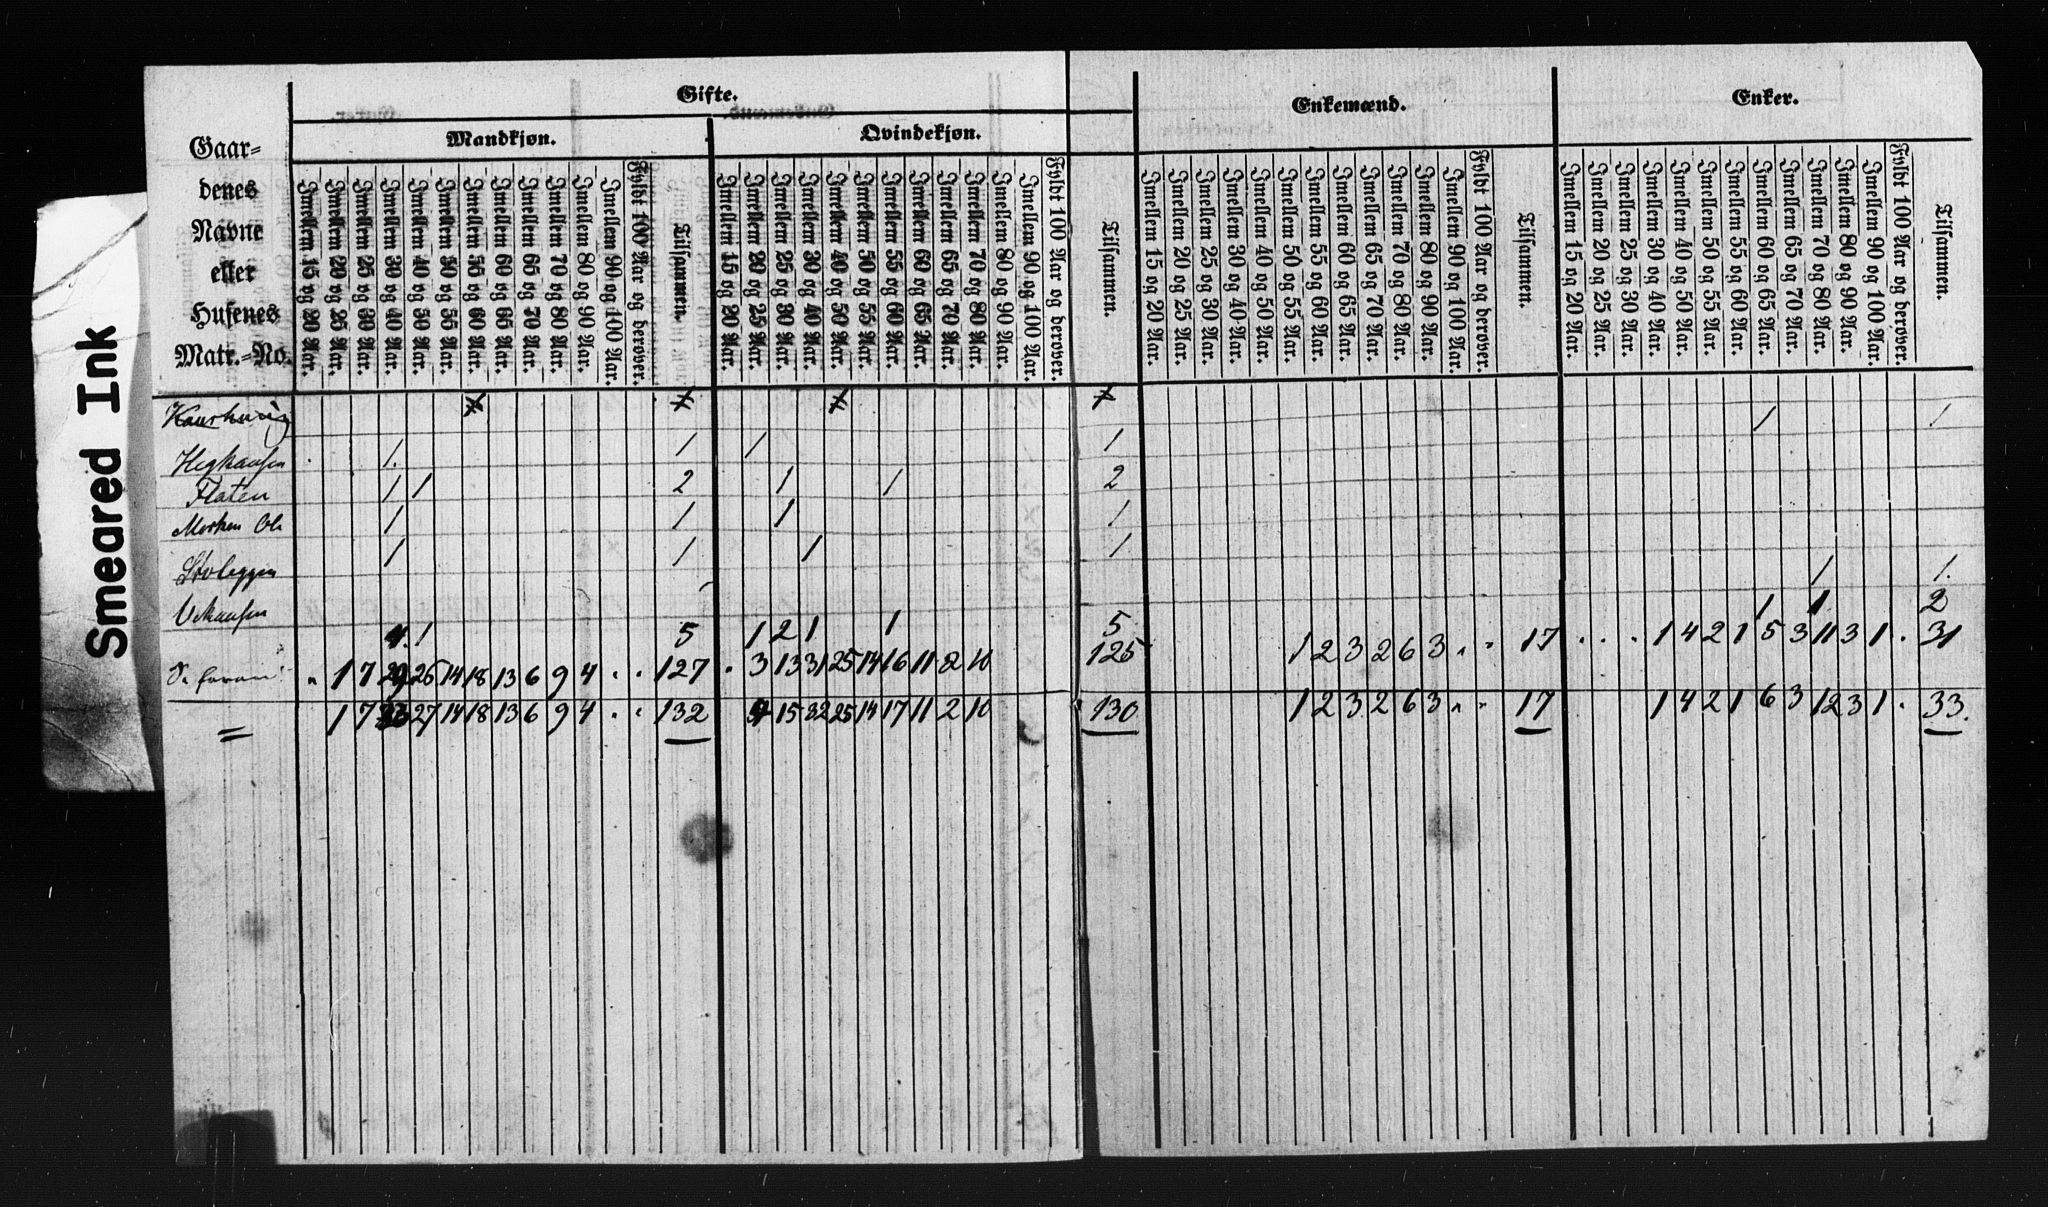 Smeared Ink
Gifte.
Enkemænd.
Enker.
Mandkjøn.
Qvindekjøn.
Gaar-
denes
Navne
eller
Husenes
Matr.-No.
Imellem 15 og 20 Aar.
Imellem 20 og 25 Aar.
Imellem 25 og 30 Aar.
Imellem 30 og 40 Aar.
Imellem 40 og 50 Aar.
Imellem 50 og 55 Aar.
Imellem 55 og 60 Aar.
Imellem 60 og 65 Aar.
Imellem 65 og 70 Aar.
Imellem 70 og 80 Aar.
Imellem 80 og 90 Aar.
Imellem 90 og 100 Aar.
Fyldt 100 Aar og derover.
Tilsammen.
Imellem 15 og 20 Aar.
Imellem 20 og 25 Aar.
Imellem 25 og 30 Aar.
Imellem 30 og 40 Aar.
Imellem 40 og 50 Aar.
Imellem 50 og 55 Aar.
Imellem 55 og 60 Aar.
Imellem 60 og 65 Aar.
Imellem 65 og 70 Aar.
Imellem 70 og 80 Aar.
Imellem 80 og 90 Aar.
Imellem 90 og 100 Aar.
Fyldt 100 Aar og derover.
Tilsammen.
Imellem 15 og 20 Aar.
Imellem 20 og 25 Aar.
Imellem 25 og 30 Aar.
Imellem 30 og 40 Aar.
Imellem 40 og 50 Aar.
Imellem 50 og 55 Aar.
Imellem 55 og 60 Aar.
Imellem 60 og 65 Aar.
Imellem 65 og 70 Aar.
Imellem 70 og 80 Aar.
Imellem 80 og 90 Aar.
Imellem 90 og 100 Aar.
Fyldt 100 Aar og derover.
Tilsammen.
Imellem 15 og 20 Aar.
Imellem 20 og 25 Aar.
Imellem 25 og 30 Aar.
Imellem 30 og 40 Aar.
Imellem 40 og 50 Aar.
Imellem 50 og 55 Aar.
Imellem 55 og 60 Aar.
Imellem 60 og 65 Aar.
Imellem 65 og 70 Aar.
Imellem 70 og 80 Aar.
Imellem 80 og 90 Aar.
Imellem 90 og 100 Aar.
Fyldt 100 Aar og derover.
Tilsammen.
1 1
1. 1 1 1
Flaten 1 1 2 1 1 2
1 1 1 1
1 1 1 1
1 1.
1 1 2
1 5 1 2 1 1 5
1 7 29 26 14 18 13 6 9 4 127 3 13 31 25 14 16 11 2 10 125 1 2 3 2 6 3 17 1 4 2 1 5 3 11 3 1 31
1 7 27 14 18 13 6 9 4 132 15 32 25 14 17 11 2 10 130 1 2 3 2 6 3 17 1 4 2 1 6 3 12 3 1 33.